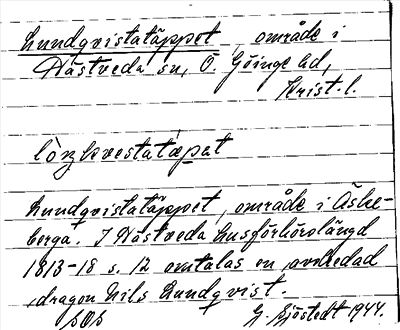 Lundqvistatäppet, område i
Hästveda sn, Ö. Göinge hd,
Krist. l.
Lundqvistatäppet, område i Äske-
berga. I Hästveda husförhörslängd
1813-18 s. 12 omtalas en avskedad
dragon Nils Lundqvist.
G. Sjöstedt 1944.